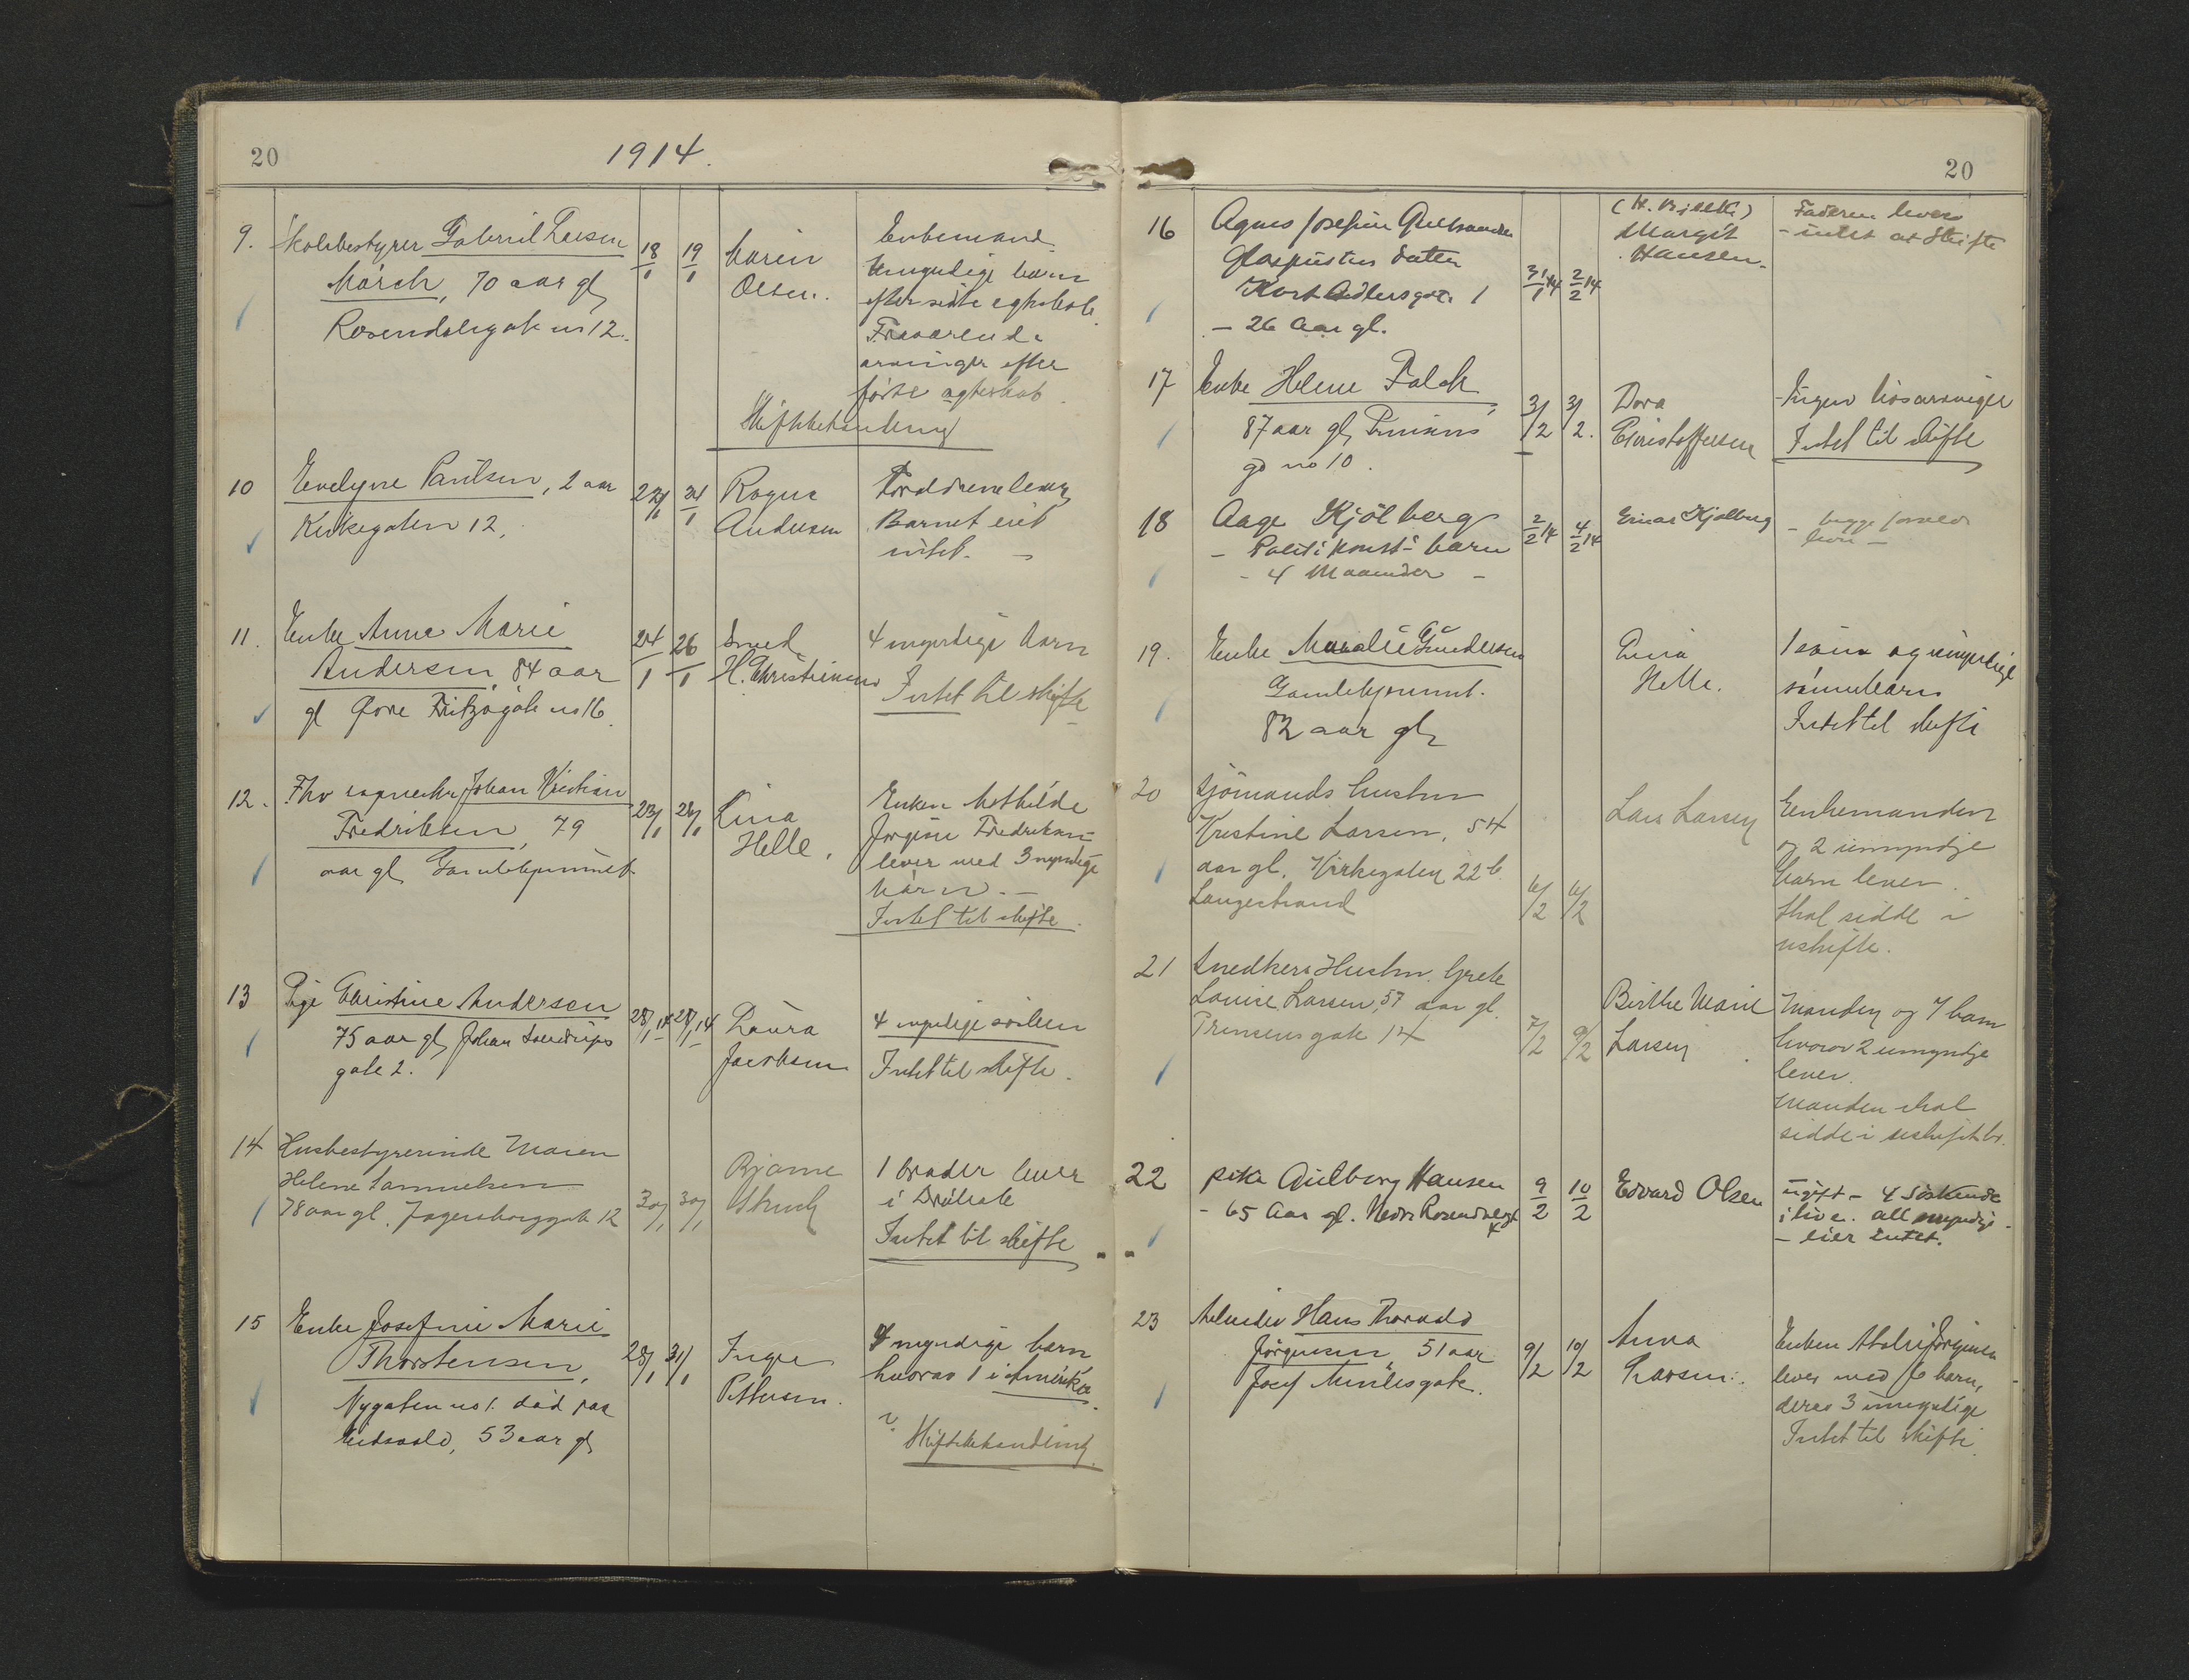 20
1914.
9. Skolebestyrer Gabriel Larsen
Mörch, 70 aar gl
Rosendalsgate no 12.
18/1 19/1
Karin
Olsen.
Enkemand
Umyndige barn
efter siste egteskab.
Fraværende
arvinger efter
förste egteskab.
Skiftebehandling
10 Evelyne Paulsen, 2 aar
Kirkegaten 12.
24/1
Ragna
Andersen
Forældrene lever
Barnet eiet
intet. –
11. Enke Anna Marie
Andersen, 84 aar
gl Øvre Fritzøgate no 16.
24/1 26/1
Smed
H. Christiansen
4 myndige barn
Intet til skifte
12. Fhv vognmand Johan Kristian
Fredriksen, 79
aar gl Gamlehjemmet.
23/1 28/1
Lina
Helle.
Enken Mathilde
Jorgine Fredriksen
lever med 3 myndige
barn. –
Intet til skifte.
13 Pige Christine Andersen
75 aar gl, Johan Sverdrups
gate 2.
28/1 14 28/1 14
Laura
Jacobsen
4 myndige södsken
Intet til skifte.
14 Husbestyrerinde Maren
Helene Samuelsen
78 aar gl. Jegersborggate 12
30/1 30/1
Bjarne
1 broder lever
i
Intet til skifte
15 Enke Josefine Marie
Thorstensen,
Nygaten no 1. död paa
Eidsvold, 53 aar gl
28/1 31/1
Inga
Pettersen.
4 myndige barn
hvorav 1 i Amerika.
Skiftebehandling.
20
16 Agnes Josefine Gulbrandsen
Glaspusters datter
Kort Adlersgate 1
– 26 Aar gl.
31/1 14 2/2 14
Margit
Hansen.
Faderen lever
– intet at skifte
17 Enke Helene Falck,
87 aar gl, Prinsens
gd no 10.
3/2 3/2.
Dora
Christoffersen
Ingen livsarvinger
Intet til skifte
18 Aage Kjölberg
– Politikonst. barn
– 4 Maaneder –
2/2 14 4/2 14
Einar Kjølberg
– begge forældre
lever –
19. Enke Gundersen
Gamlehjemmet.
82 aar gl,
Lina
Helle.
1 sön og umyndige
sönnebarn
Intet til skifte
20 Sjömands hustru
Kristine Larsen, 54
aar gl. Kirkegaten 22 b.
Langestrand
6/2 6/2
Lars Larsen
Enkemanden
og 2 umyndige
barn lever.
Skal sidde i
uskifte.
21 Snedkers Hustru Grete
Louise Larsen, 57 aar gl.
Prinsensgate 14
7/2 9/2
Birthe Marie
Larsen
Manden og 7 barn
hvorav 2 umyndige
lever.
Manden skal
sidde i uskiftet bo.
22 pike Aulborg Hansen
– 65 Aar gl. Nedre Rosendalsgt
4
9/2 10/2
Edvard Olsen
ugift – 4 Söskende
i live. alle myndige.
– eier intet.
23 Arbeider Hans Thorvald
Jörgensen, 51 aar
Josef gate.
9/2 10/2
Anna
Larsen.
Enken Jörgensen
lever med 6 barn,
derav 3 umyndige
Intet til skifte.